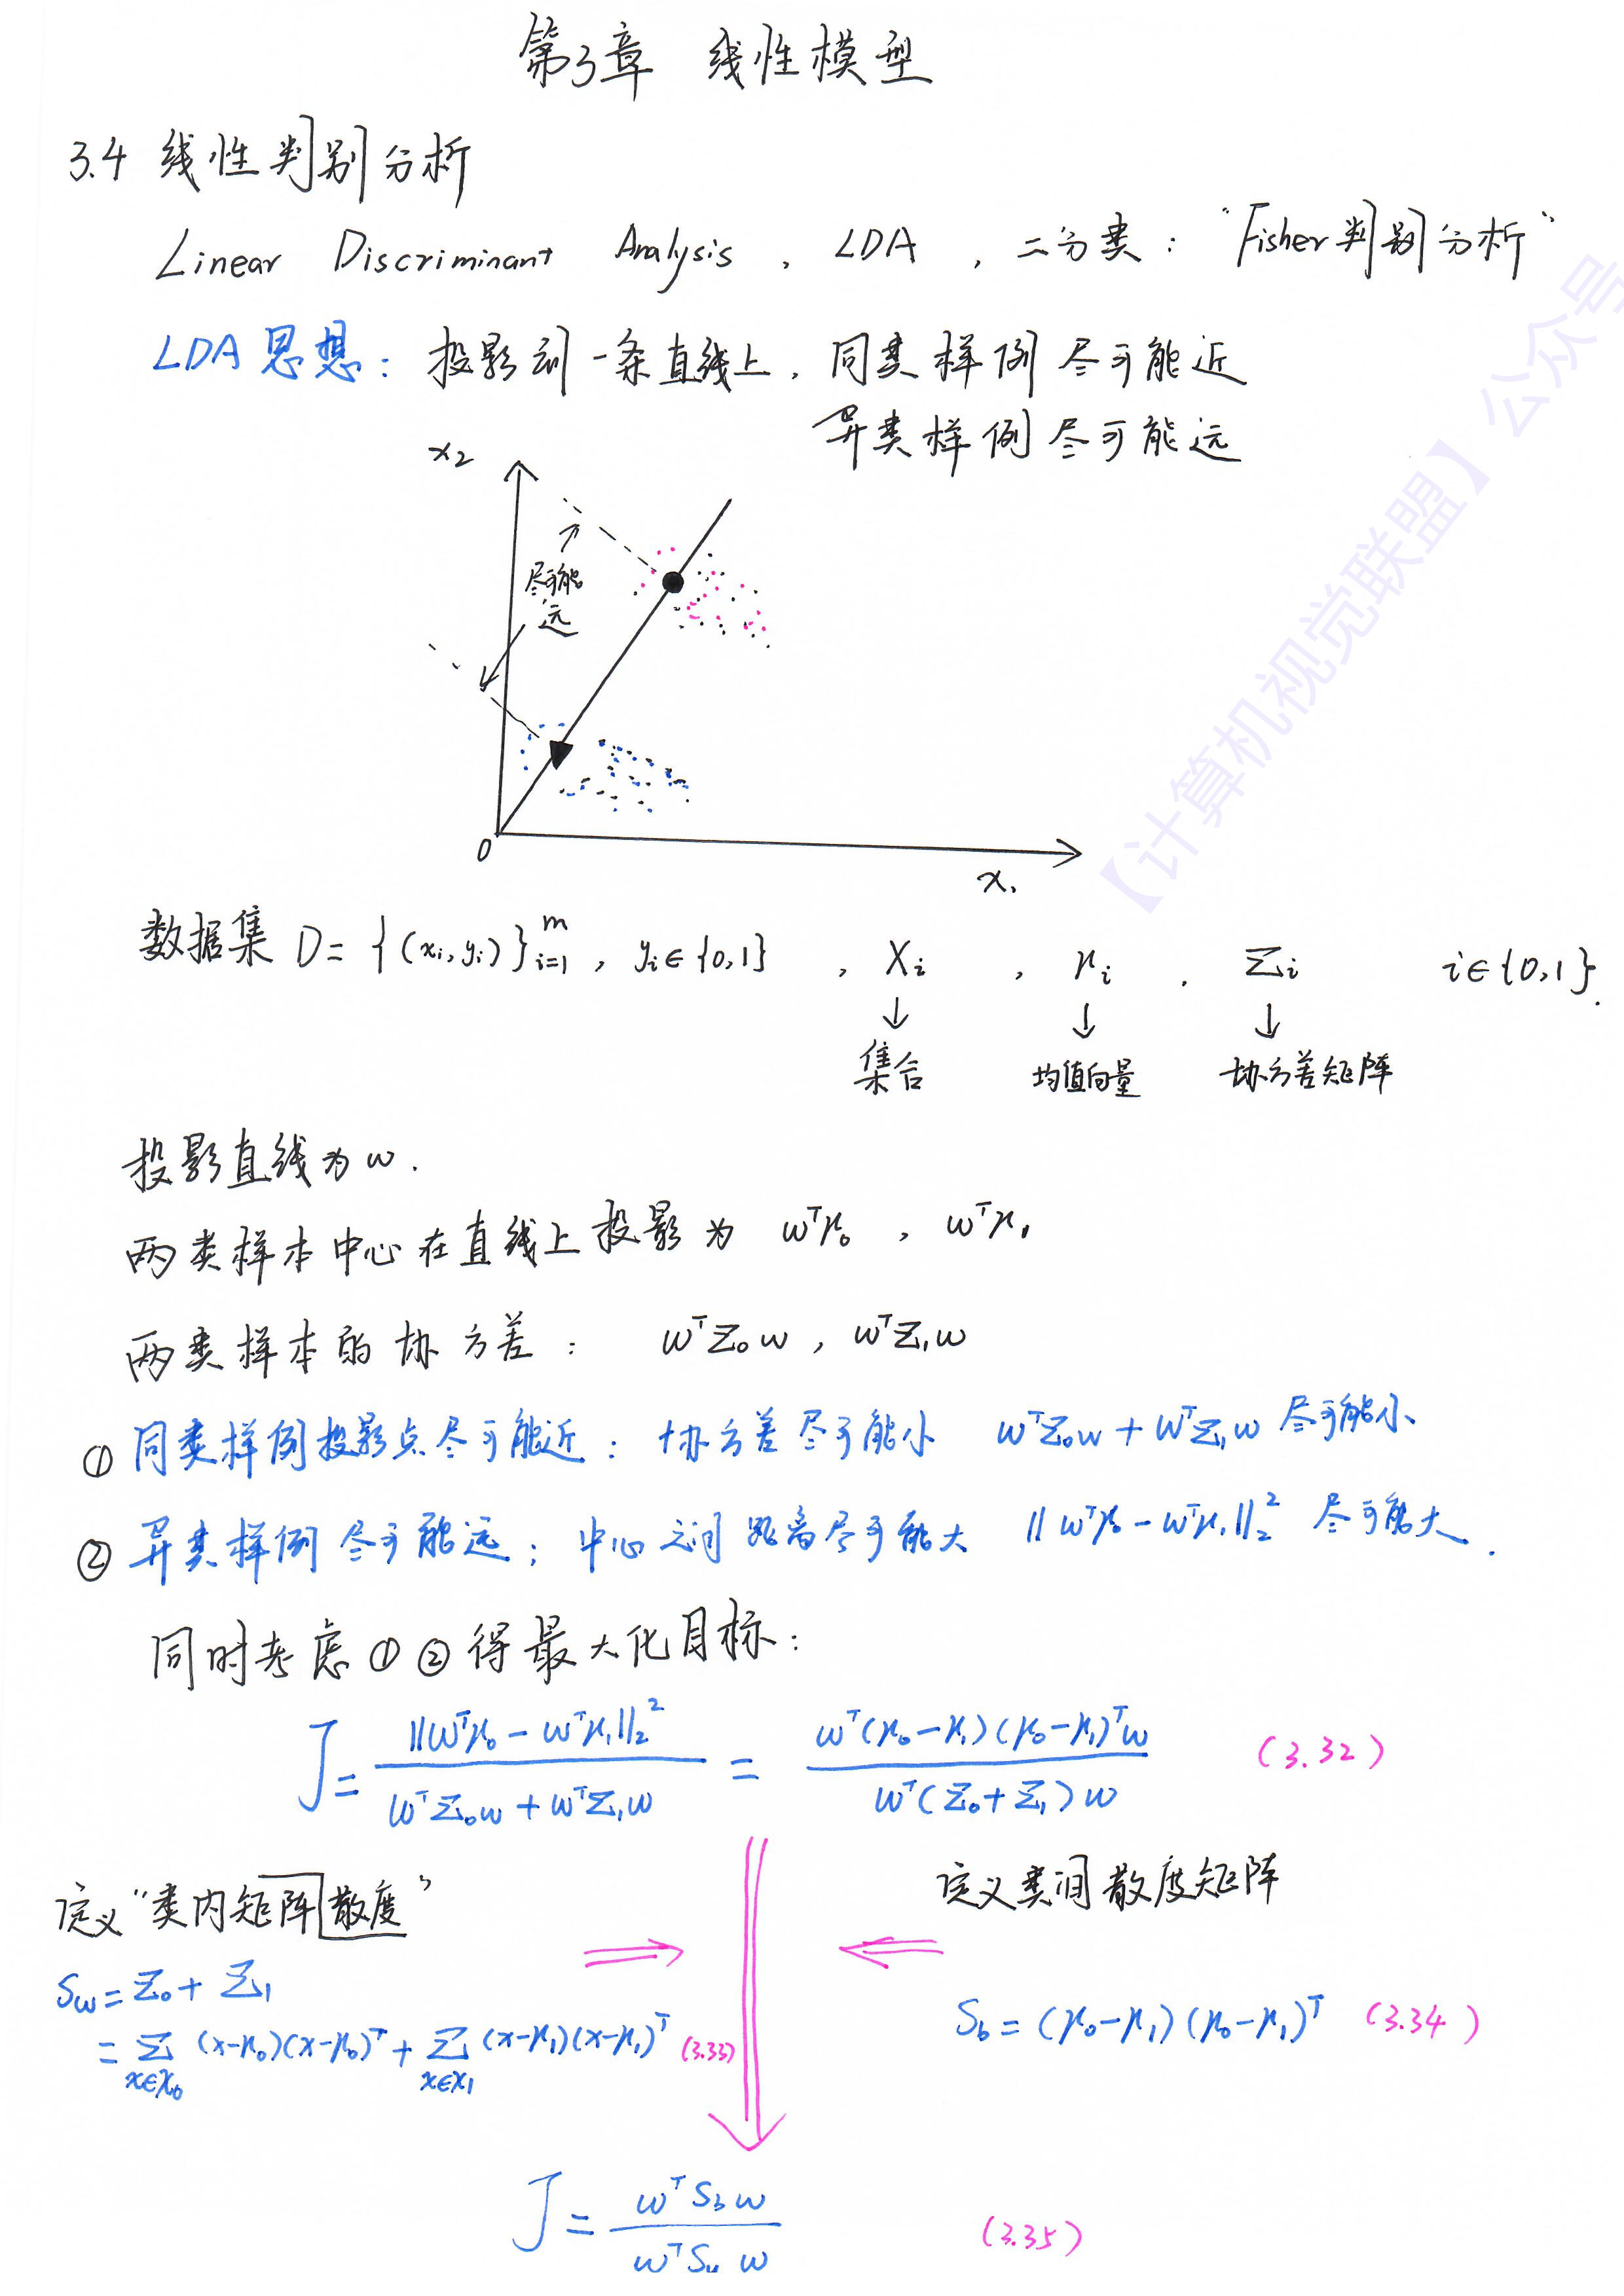 第3章 线性模型
3.4 线性判别分析
Linear Discriminant Analysis, LDA, 二分类: “Fisher判别分析”
LDA 思想: 投影到一条直线上, 同类样例尽可能近
异类样例尽可能远
x₂
尽可能
远
0
x₁
数据集 D = {(xᵢ, yᵢ)}ᵢ₌₁ᵐ, yᵢ∈{0,1}, Xᵢ, μᵢ, Σᵢ i∈{0,1}.
↓ ↓ ↓
集合 均值向量 协方差矩阵
投影直线为 w.
两类样本中心在直线上投影为 wᵀμ₀, wᵀμ₁
两类样本的协方差: wᵀΣ₀w, wᵀΣ₁w
① 同类样例投影点尽可能近: 协方差尽可能小 wᵀΣ₀w + wᵀΣ₁w 尽可能小
② 异类样例尽可能远; 中心之间距离尽可能大 ||wᵀμ₀ - wᵀμ₁||₂² 尽可能大.
同时考虑①②得最大化目标:
J = ||wᵀμ₀ - wᵀμ₁||₂² / (wᵀΣ₀w + wᵀΣ₁w) = wᵀ(μ₀-μ₁)(μ₀-μ₁)ᵀw / wᵀ(Σ₀+Σ₁)w (3.32)
定义“类内矩阵散度”
S_w = Σ₀ + Σ₁
= Σ_{x∈X₀} (x-μ₀)(x-μ₀)ᵀ + Σ_{x∈X₁} (x-μ₁)(x-μ₁)ᵀ (3.33)
定义类间散度矩阵
S_b = (μ₀-μ₁)(μ₀-μ₁)ᵀ (3.34)
J = wᵀS_b w / wᵀS_w w (3.35)
【计算机视觉联盟】公众号